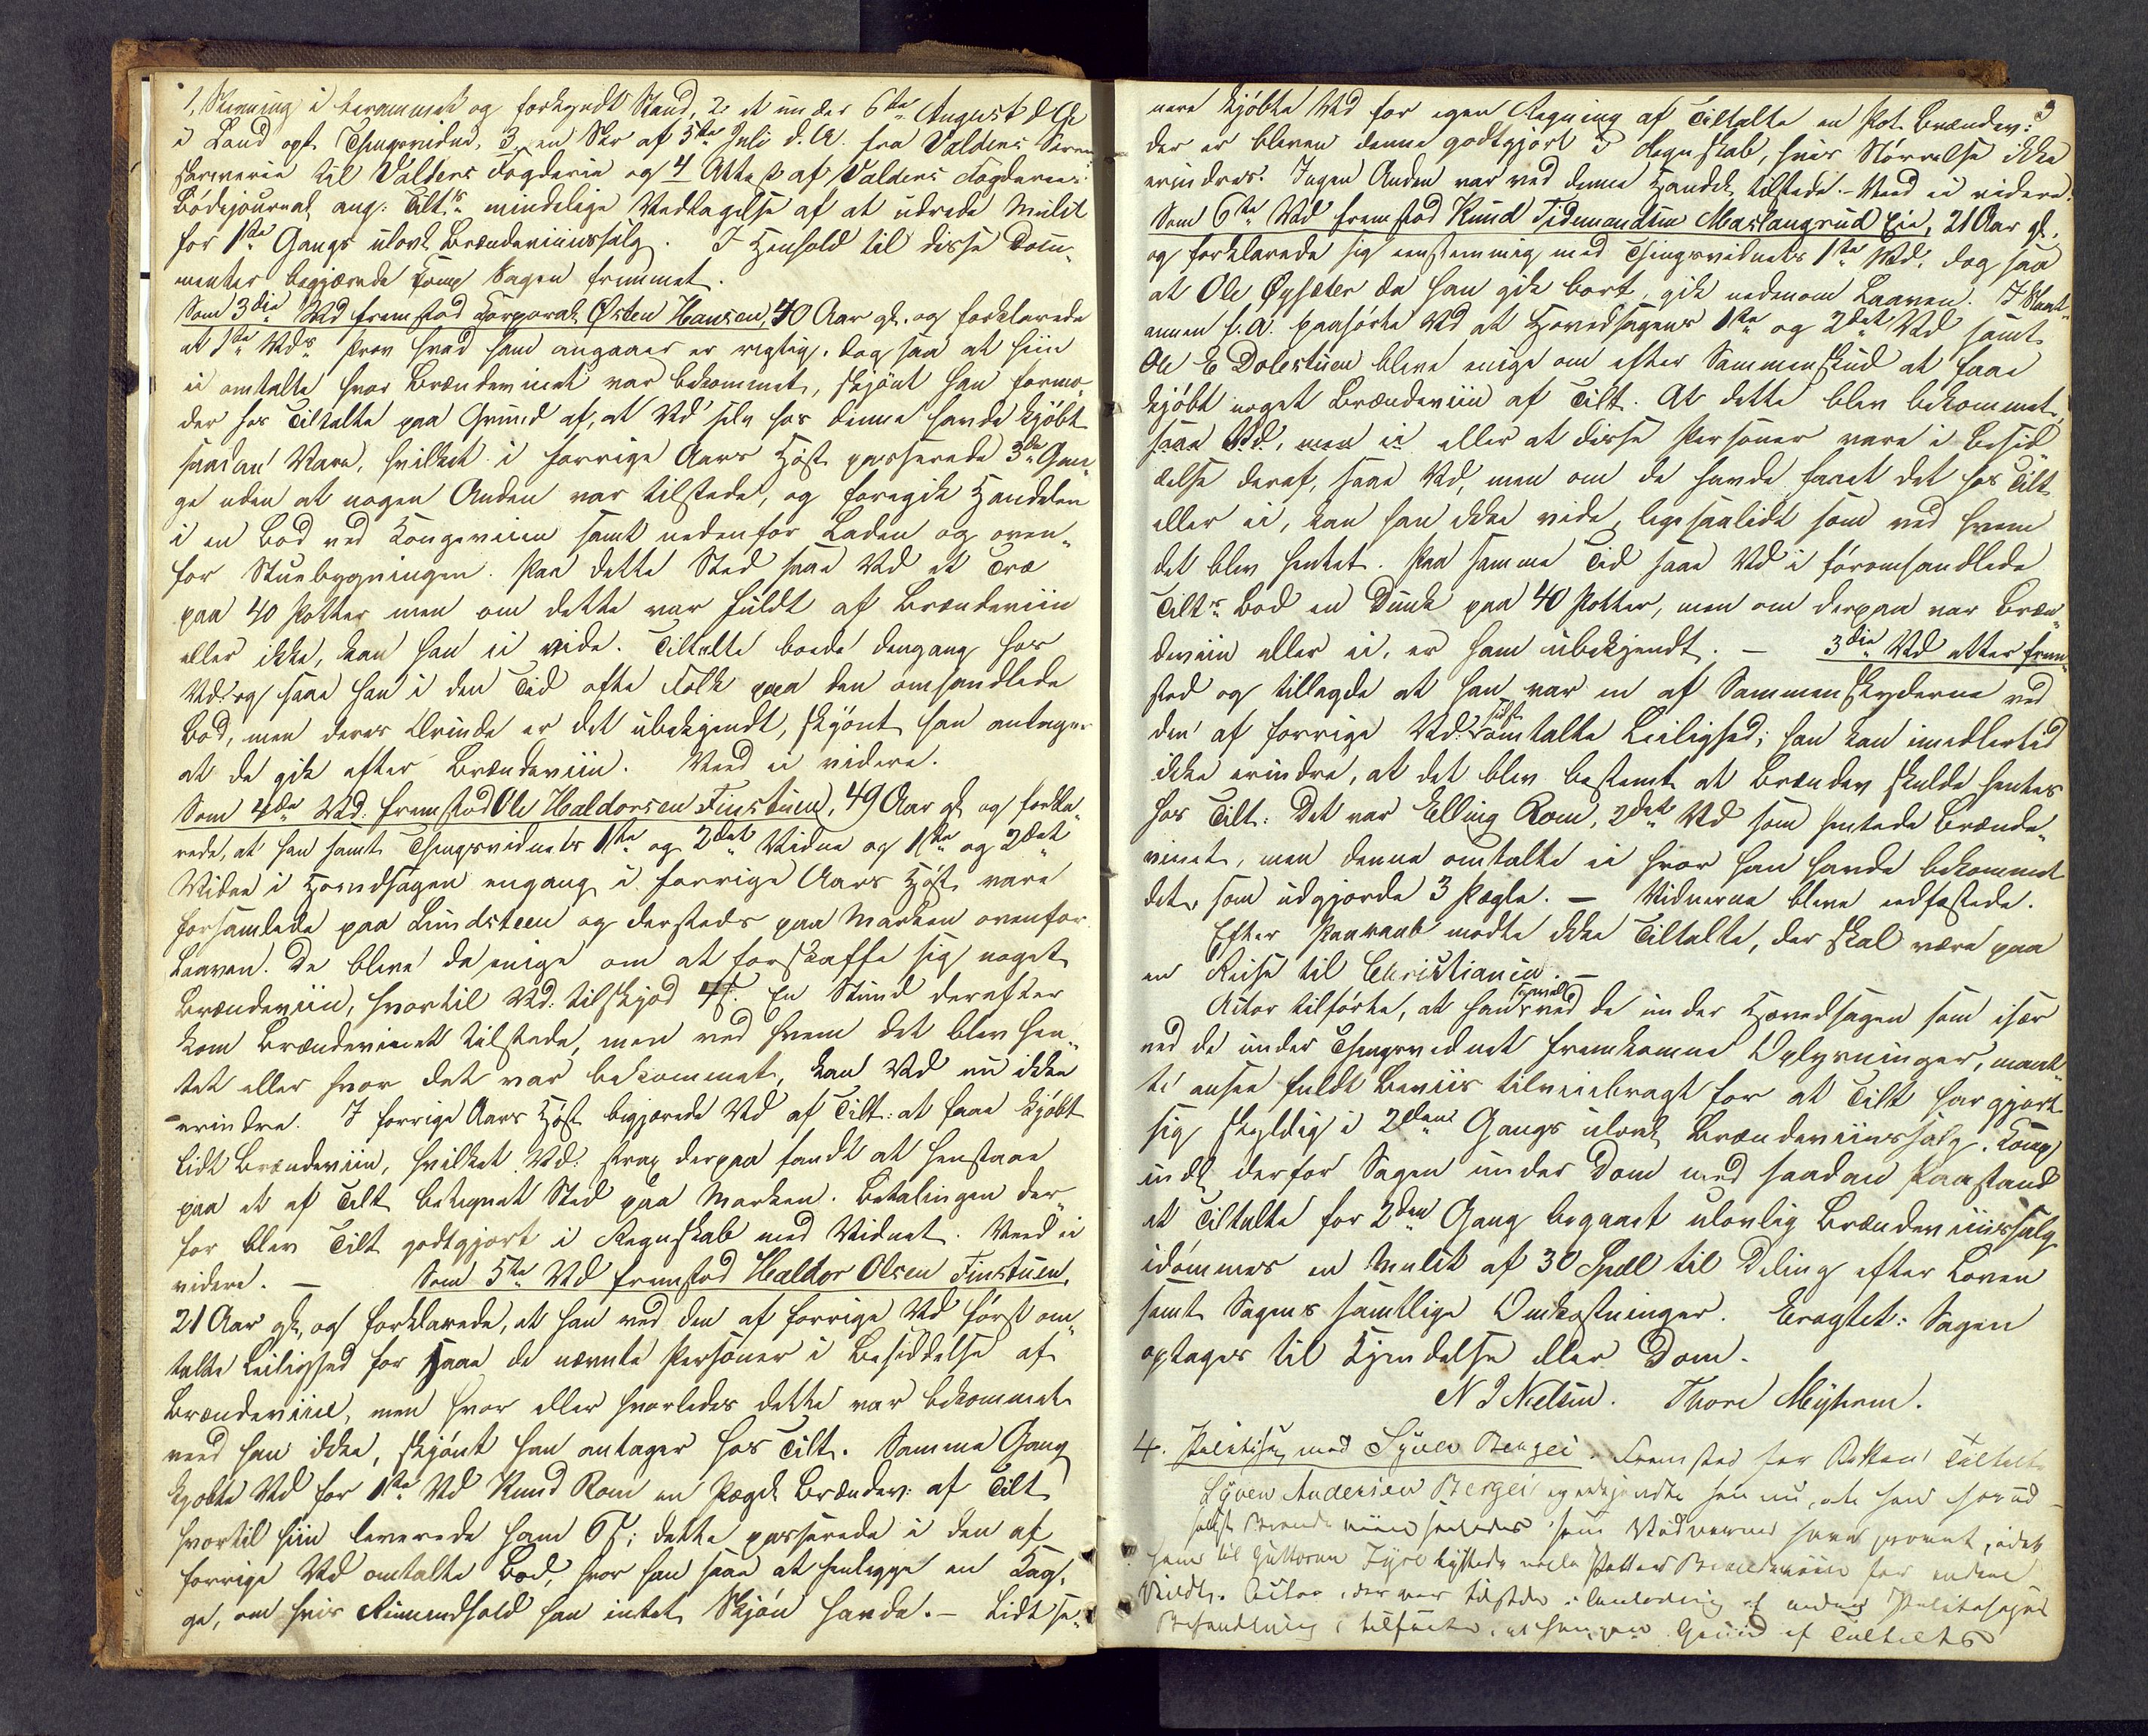 1, Stevning i berammet og forkyndt Stand, 2, et under 6te August d. A.
i Land opt. Thingsvidne, 3, en Skr af 5te Juli d. A. fra Valders Soren-
skriverie til Valders Fogderie og 4 Attest af Valders Fogderies
Bødejournal ang. Tilts mindelige Vedtagelse af at udrede Mulct
for 1ste Gangs ulovl Brændeviinssalg. I Henhold til disse Docu-
menter begjærede Comp Sagen fremmet.
Som 3die Vd fremstod Korporal Østen Hansen, 40 Aar gl. og forklarede
at 1ste Vds Prov hvad ham angaaer er rigtig, dog saa at hiin
ei omtalte hvor Brændevinet var bekommet, skjønt han formo-
der hos Tiltalte paa Grund af, at Vd selv hos denne havde kjøbt
saadan Vare, hvilket i forrige Aars Høst passerede 3de Gan-
ge uden at nogen Anden var tilstede, og foregik Handelen
i en Bod ved Kongeveien samt nedenfor Laden og oven-
for Stuebygningen. Paa dette Sted saae Vd et Træ
paa 40 Potter men om dette var fuldt af Brændeviin
eller ikke, kan han ei vide. Tiltalte boede dengang hos
Vd. og saae han i den Tid ofte Folk paa den omhandlede
Bod, men deres Ærinde er det ubekjendt, skjønt han antager
at de gik efter Brændeviin. Veed ei videre.
Som 4de Vd. fremstod Ole Haldorsen Finstuen, 49 Aar gl og forkla-
rede, at han samt Thingsvidnets 1ste og 2det Vidne og 1ste og 2det
Vidne i Hovedsagen engang i forrige Aars Høst vare
forsamlede paa Lundsteen og dersteds paa Marken ovenfor
Laaven. De bleve da enige om at forskaffe sig noget
Brændeviin, hvortil Vd. tilskjød 4 s. En Stund derefter
kom Brændevinet tilstede, men ved hvem det blev hen-
tet eller hvor det var bekommet, kan Vd nu ikke
erindre. I forrige Aars Høst begjærede Vd af Tilt. at faae kjøbt
lidt Brændeviin, hvilket Vd. strax derpaa fandt at henstaae
paa et af Tilt betegnet Sted paa Marken. Betalingen der-
for blev Tilt godtgjort i Regnskab med Vidnet. Veed ei
videre. – Som 5te Vd fremstod Haldor Olsen Finstuen,
21 Aar gl, og forklarede, at han ved den af forrige Vd først om-
talte Leilighed før saae de nævnte Personer i Besiddelse af
Brændeviin, men hvor eller hvorledes dette var bekommet
veed han ikke, skjønt han antager hos Tilt. Samme Gang
kjøbte Vd for 1ste Vd Knud Rom en Pægl Brændev: af Tilt
hvortil hiin leverede ham 6 s; dette passerede i den af
forrige Vd omtalte Bod, hvor han saae at henligge en Kag-
ge, om hvis Rumindhold han intet Skjøn havde. – Lidt se-
nere kjøbte Vd for egen Regning af Tiltalte en Pot Brændev:
der er bleven denne godtgjort i Regnskab, hvis Størrelse ikke
erindres. Ingen Anden var ved denne Handel tilstede. – Veed ei videre.
Som 6te Vd fremstod Knud Tidemandsen Maslangrud Eie, 21 Aar gl.
og forklarede sig eenstemmig med Thingsvidnets 1ste Vd, dog saa
at Ole Øgsæter da han gik bort, gik nedenom Laaven.
anmen f. A. paahørte Vd at Hovedsagens 1ste og 2det Vd samt
Ole E Dolestuen bleve enige om efter Sammenskud at faae
kjøbt noget Brændeviin af Tilt. At dette blev bekommet,
saae Vd, men ei eller at disse Personer vare i Besid-
delse deraf, saae Vd, men om de havde faaet det hos Tilt
eller ei, kan han ikke vide, ligesaalidt som ved hvem
det blev hentet. Paa samme Tid saae Vd i føromhandlede
Tilts Bod en Dunk paa 40 Potter, men om derpaa var Bræn-
deviin eller ei, er ham ubekjendt. – 3die Vd atter frem-
stod og tillagde at han var en af Sammenskyderne ved
den af forrige Vd. sidst omtalte Leilighed; han kan imidlertid
ikke erindre, at det blev bestemt at Brændev skulde hentes
hos Tilt. Det var Elling Rom, 2det Vd som hentede Brænde-
vinet, men denne omtalte ei hvor han havde bekommet
det, som udgjorde 3 Pægle. – Vidnerne bleve eedfæstede.
Efter Paaraab mødte ikke Tiltalte, der skal være paa
en Reise til Christiania. –
Actor tilførte, at han saavel ved de under Hovedsagen som især
ved de under Thingsvidnet fremkomne Oplysninger, maat-
te ansee fuldt Beviis tilveiebragt for at Tilt har gjort
sig skyldig i 2den Gangs ulovl Brændeviinssalg. Comp
indl derfor Sagen under Dom med saadan Paastand
at Tiltalte for 2den Gang begaaet ulovlig Brændeviinssalg
idømmes en Mulct af 30 Spdl til Deling efter Loven
samt Sagens samtlige Omkostninger. Eragtet: Sagen
optages til Kjendelse eller Dom.
N J Nielsen. Thore Myhren.
4. Politisag mod Syver Bergei. Fremstod for Retten Tiltalte
Syver Andersen Bergei og erkjendte han nu, at han har ud-
solgt Brændeviin saaledes som Vidnerne have provet, idet
han til Guttorm nelle Potter Brændeviin for endeel
Actor, der var tilstede i Anledning af anden Politisags
Behandling, tilførte, at han paa Grund af Tiltaltes